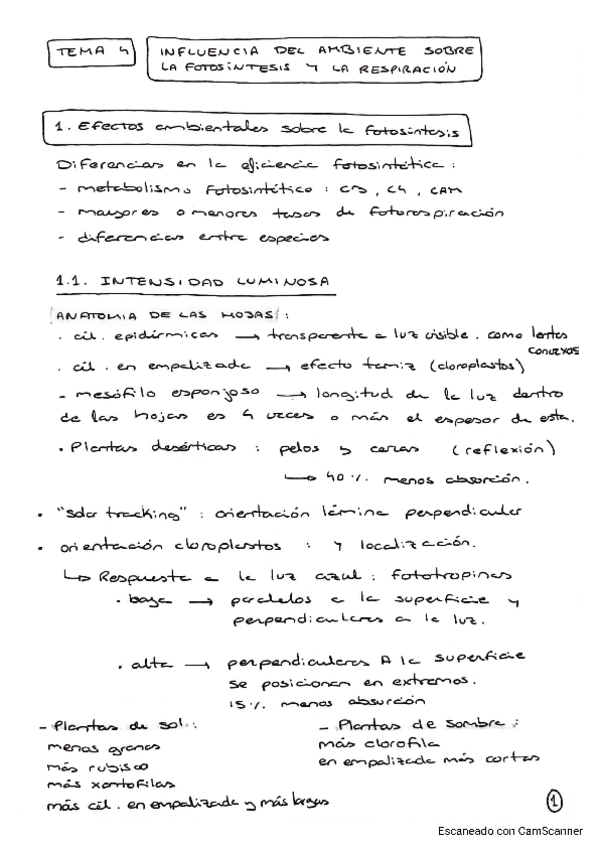 TEMA 4
INFLUENCIA DEL AMBIENTE SOBRE
LA FOTOSÍNTESIS Y LA RESPIRACIÓN
1. Efectos ambientales sobre la fotosíntesis
Diferencias en la eficiencia fotosintética :
- metabolismo fotosintético : C3, C4, CAM
- mayores o menores tasas de fotorespiración
- diferencias entre especies
1.1. INTENSIDAD LUMINOSA
ANATOMIA DE LAS HOJAS :
· cél. epidérmicas → transparente a luz visible. como lentes
convexos
· cél. en empalizada → efecto tamiz (cloroplastos)
- mesófilo esponjoso → longitud de la luz dentro
de las hojas es 4 veces o más el espesor de esta.
· Plantas desérticas : pelos y ceras (reflexión)
↳ 40 % menos absorción.
· "solar tracking" : orientación lámina perpendicular
· orientación cloroplastos : y localización.
↳ Respuesta a la luz azul : fototropinas
· baja → paralelos a la superficie y
perpendiculares a la luz.
· alta → perpendiculares A la superficie
se posicionan en extremos.
15 % menos absorción
- Plantas de sol :
menos granas
más rubisco
más xantofilas
más cél. en empalizada y más largas
- Plantas de sombra :
más clorofila
en empalizada más cortas
1
Escaneado con CamScanner